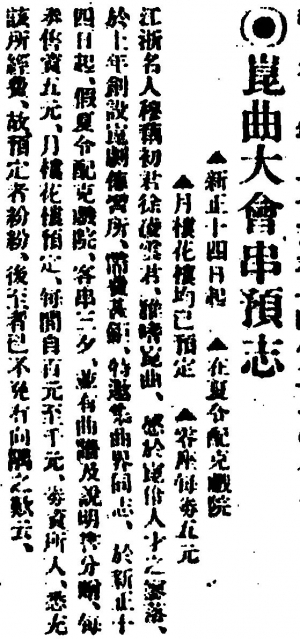 崑曲大會串預志
▲新正十四日起 ▲在夏令配克戲院
▲月樓花樓均已預定 ▲客座每券五元
江浙名人穆藕初君徐凌雲君、雅嗜崑曲、感於崑伶人才之寥落、
於上年創設崑劇傳習所、需費甚鉅、特邀集曲界同志、於新正十
四日起、假夏令配克戲院、客串三夕、並有曲譜及說明書分贈、每
券售實五元、月樓花樓預定、每間自百元至千元、券資所入、悉充
該所經費、故預定者紛紛、後至者已不免有向隅之歎云、